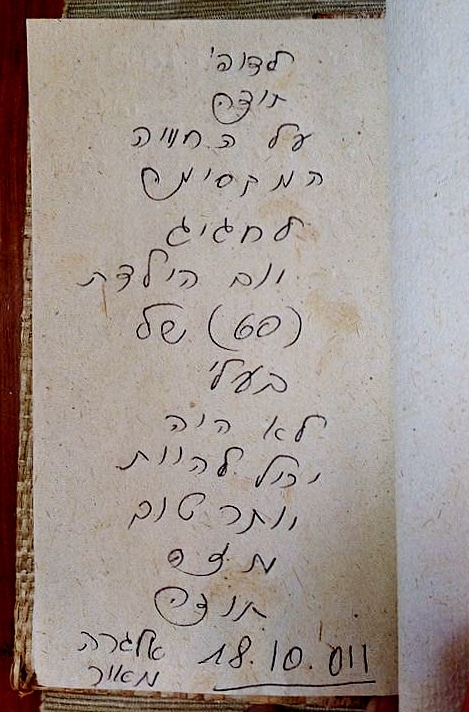 תודה
על החוויה
המקסימה
לחגיג
יום הולדת
(60) של
בעלי
לא היה
יכול להיות
יותר טוב
תודה
18.10.011
אלגרה
מאור